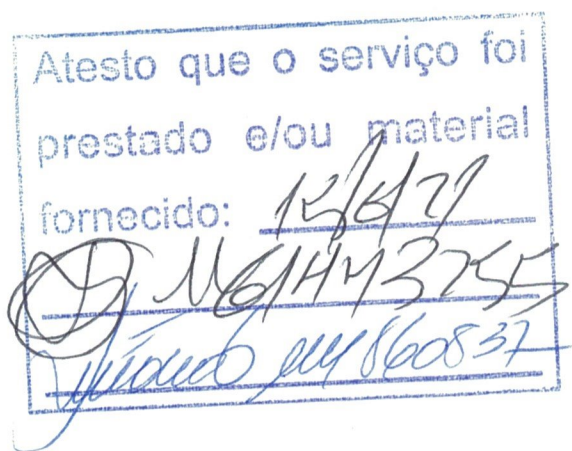 Atesto que o serviço foi
prestado e/ou material
fornecido: 15/6/21
860837